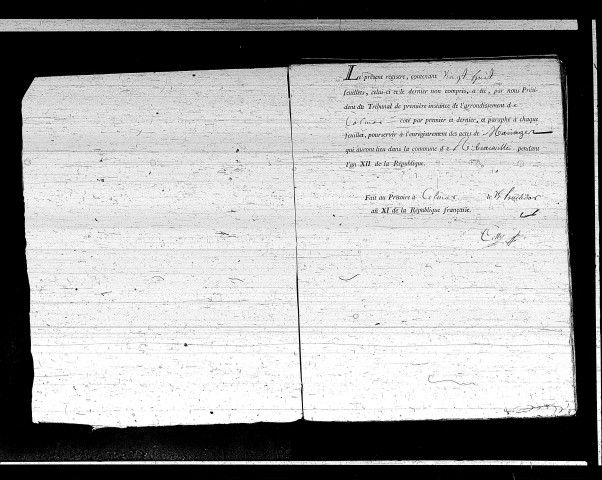 Le présent registre, contenant Vingt huit
feuillets, celui-ci et le dernier non compris, a été, par nous Prési-
dent du Tribunal de première instance de l'arrondissement de
Colmar coté par premier et dernier, et paraphé à chaque
feuillet, pour servir à l'enrégistrement des actes de Mariages
qui auront lieu dans la commune de Ribeauvillé pendant
l'an XII de la République.
Fait au Prétoire à Colmar le
an XI de la République française.